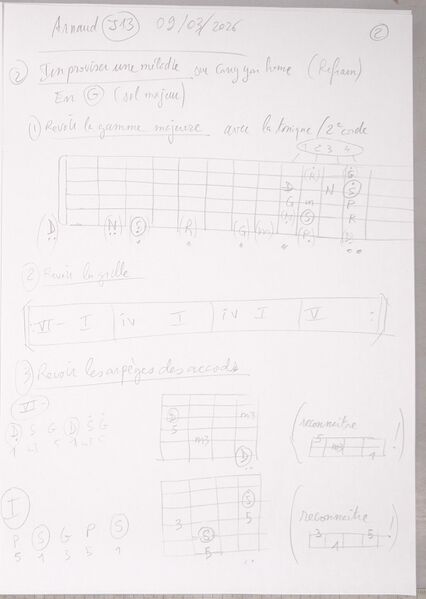 Arnaud J13 09/03/2026
②
② Improviser une mélodie sur Carry you home (Refrain)
En G (sol majeur)
① Revoir la gamme majeure avec la tonique / 2e corde
1 2 3 4
(R) G
D N S
G m P
(N) S R
(D) N S (R) (G) (m) (P) D
② Revoir la grille
VI- I | IV I | IV I | V :
③ Revoir les arpèges des accords
VI-
D S G D S G
1 m3 5 1 m3 5
D m3
5
m3
D
(reconnaître !)
5 m3 1
I
P S G P S
5 1 3 5 1
S
3 5
S
5
(reconnaître !)
3 1 5